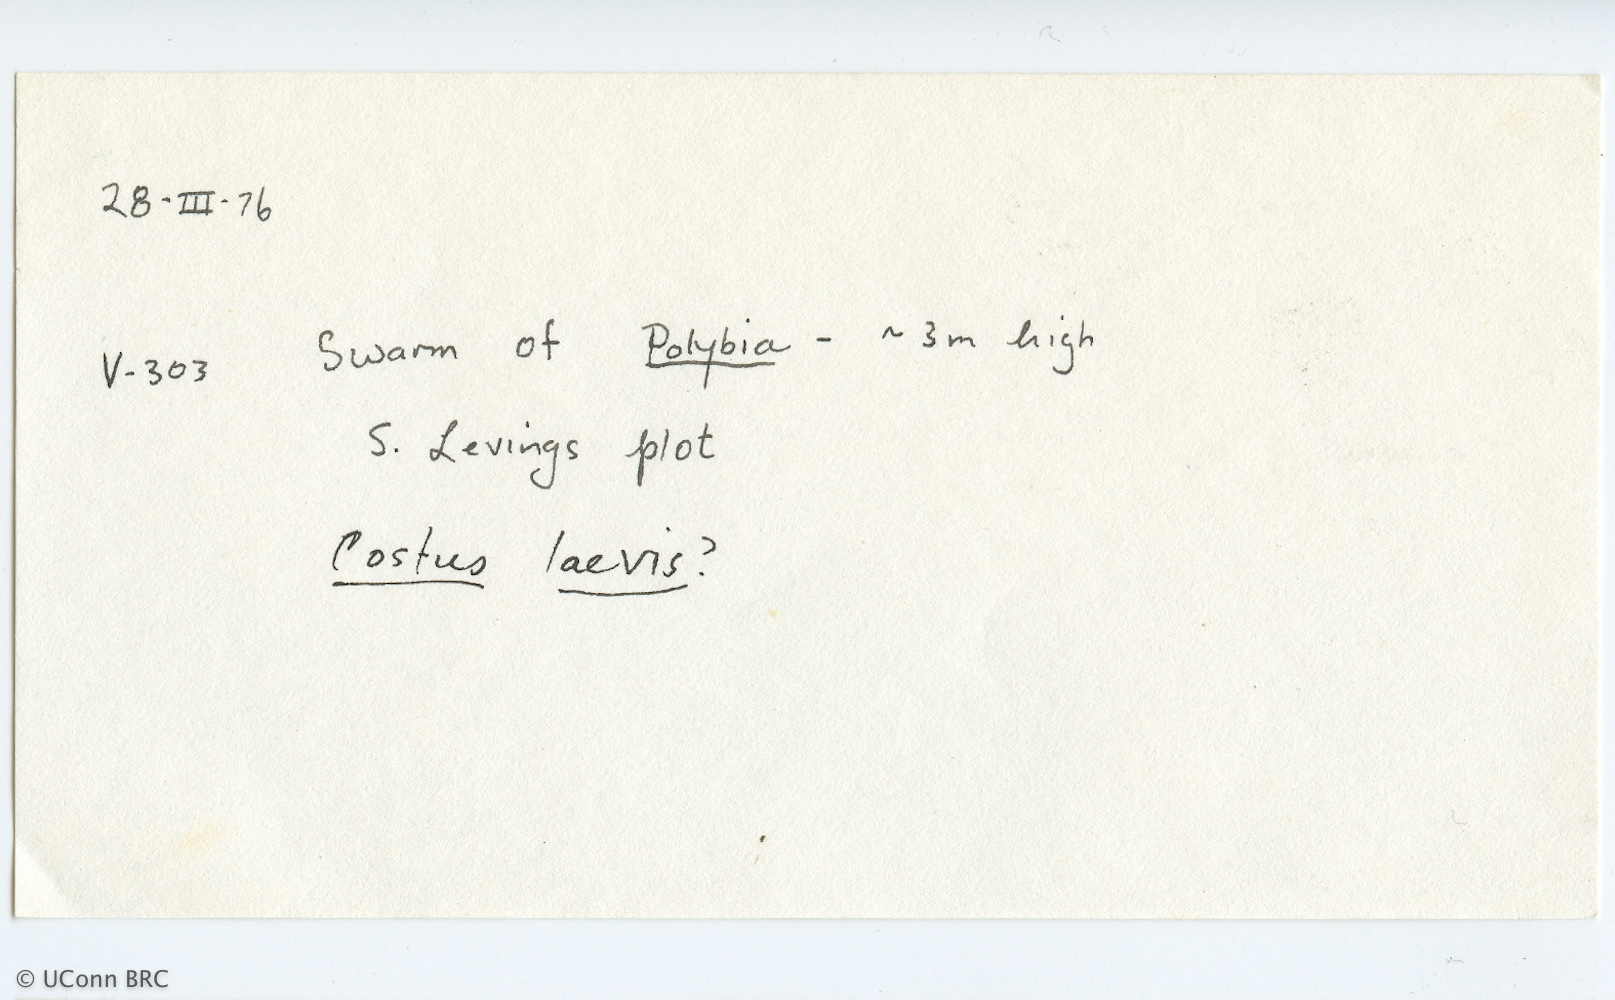 28-III-76
V-303 Swarm of Polybia - ~3m high
S. Levings plot
Costus laevis?
© UConn BRC